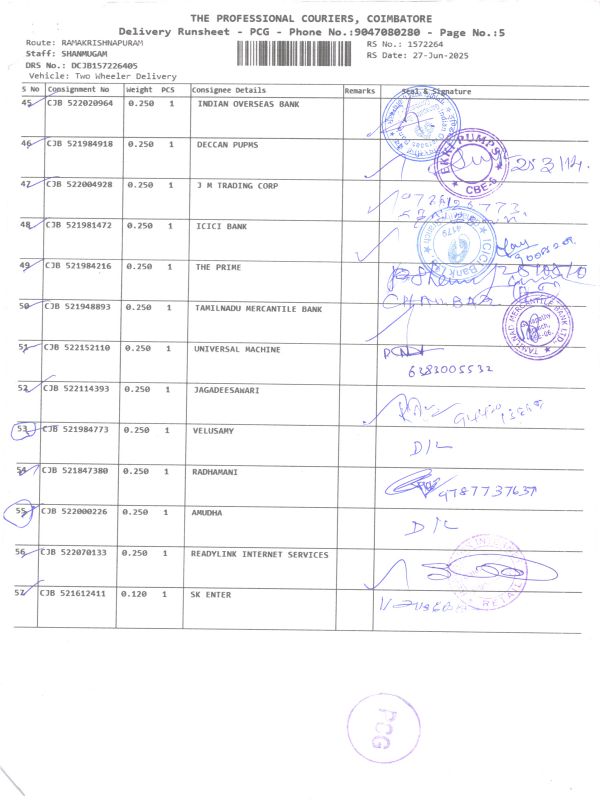 THE PROFESSIONAL COURIERS, COIMBATORE
Delivery Runsheet - PCG - Phone No.:9047080280 - Page No.:5
Route: RAMAKRISHNAPURAM RS No.: 1572264
Staff: SHANMUGAM RS Date: 27-Jun-2025
DRS No.: DCJB157226405
Vehicle: Two Wheeler Delivery
S No Consignment No Weight PCS Consignee Details Remarks Seal & Signature
45 CJB 522020964 0.250 1 INDIAN OVERSEAS BANK
46 CJB 521984918 0.250 1 DECCAN PUPMS
EKKI PUMPS
CBE-6
47 CJB 522004928 0.250 1 J M TRADING CORP
48 CJB 521981472 0.250 1 ICICI BANK
ICICI Bank Ltd.
4179
49 CJB 521984216 0.250 1 THE PRIME
50 CJB 521948893 0.250 1 TAMILNADU MERCANTILE BANK
TAMILNAD MERCANTILE BANK LTD.
51 CJB 522152110 0.250 1 UNIVERSAL MACHINE
6383005532
52 CJB 522114393 0.250 1 JAGADEESAWARI
53 CJB 521984773 0.250 1 VELUSAMY D/L
54 CJB 521847380 0.250 1 RADHAMANI
9787737637
55 CJB 522000226 0.250 1 AMUDHA D/L
56 CJB 522070133 0.250 1 READYLINK INTERNET SERVICES
RETAIL
57 CJB 521612411 0.120 1 SK ENTER
PCG